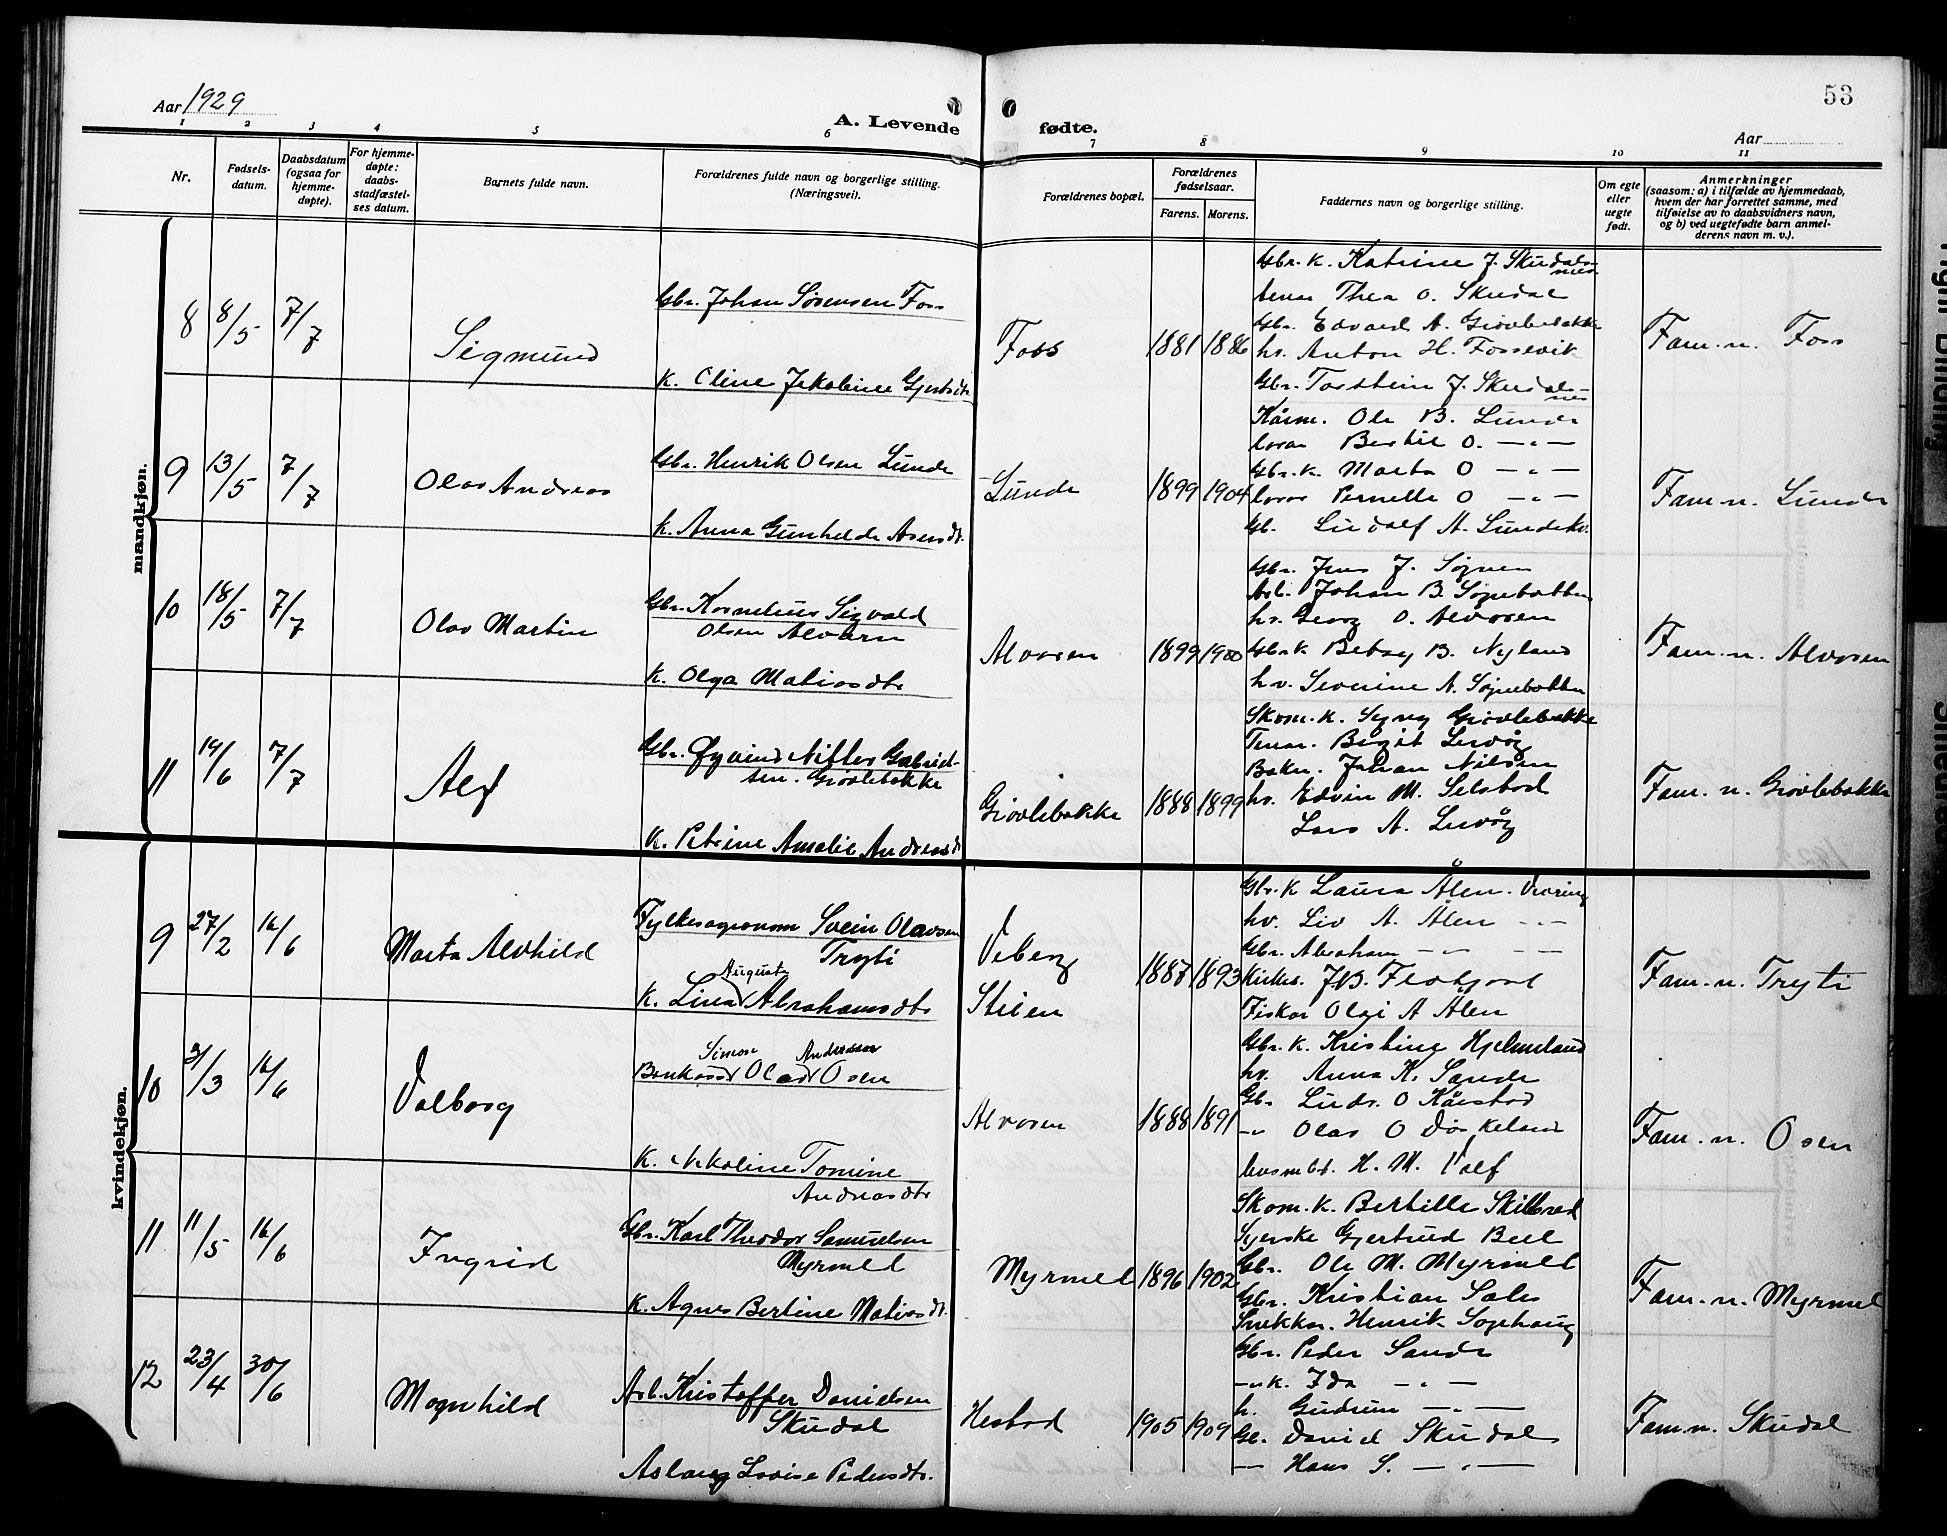 53
Aar 1929
A. Levende fødte.
Aar
1 2 3 4 5 6 7 8 9 10 11
Nr.
Fødsels-
datum.
Daabsdatum
(ogsaa for
hjemme-
døpte).
For hjemme-
døpte:
daabs-
stadfæstel-
ses datum.
Barnets fulde navn.
Forældrenes fulde navn og borgerlige stilling.
(Næringsvei).
Forældrenes bopæl.
Forældrenes
fødselsaar.
Farens. Morens.
Faddernes navn og borgerlige stilling.
Om egte
eller
uegte
født.
Anmerkninger
(saasom: a) i tilfælde av hjemmedaab,
hvem der har forrettet samme, med
tilføielse av to daabsvidners navn,
og b) ved uegtefødte barn anmel-
derens navn m. v.).
mandkjøn.
8 8/5 7/7 Sigmund
Gbr. Johan Sørensen Foss
K. Oline Jakobine Gjertsdtr
Foss 1881 1886
Gbr. K. Katrine J. Skudals-
nes
Thea O. Skudal
Gbr. Edvard A. Gjovlebakke
hv. Anton H. Fossevik
Gbr. Torstein J. Skudals-
nes
Fam. n. Foss
9 13/5 7/7 Olav Andreas
Gbr. Henrik Olsen Lunde
K. Anna Gunhilde Aensdt.
Lunde 1899 1904
Kårm. Ole B. Lunde
Bertil O. -"-
Gbr. k. Marta O -"-
Pernille O -"-
Gb. Ludolf A. Lundekv.
Fam. n. Lunde
10 18/5 7/7 Olav Martin
Gbr. Kornelius Sigvald
Olsen Alvoren
K. Olga Matiasdtr
Alvoren 1899 1900
Gbr. Jens J. Søgnen
Arb. Johan B. Søgnebotten
hv. Georg O. Alvoren
Gbr K Betsy B. Nyland
hv. Severine A. Søgnebotten
Fam. n. Alvoren
11 14/6 7/7 Alf
Gbr. Øyvind Nitter Gabriel-
sen. Gjovlebakke
K. Petrine Amalie Andreasdt
Gjovlebakke 1888 1899
Skom. K. Signy Gjovlebakke
Tenar. Birgit Levåg
Baker. Johan Nilsen
hv. Edvin M. Selstad
Lars A. Levåg
Fam. n. Gjovlebakke
kvindekjøn.
9 27/2 16/6 Marta Alvhild
Fylkesagronom Svein Olavsen
Tryti
Auguste
K. Lina Abrahamsdtr
Veberg
Stieen 1887 1893
Gbr. K Laura Ålen. Vevring
hv. Liv A. Ålen -"-
Gbr. Abraham -"- -"-
J.B. Flokjøl
Fisker Olai A Ålen
Fam. n. Tryti
10 3/3 16/6 Valborg
Simon Anderssen
Bankass Olav Osen
K. Nikoline Tomine
Andreasdtr
Alvoren 1888 1891
Gbr. K. Kristine Hjelmeland
hv. Anna K. Sande
Gbr. Ludv. O Kårstad
-"- Olav O Dørkeland
H. M. Valf
Fam. n. Osen
11 11/5 16/6 Ingrid
Gbr. Karl Theodor Samuelsen
Myrmel
K. Agnes Bertine Matiasdt.
Myrmel 1896 1902
Skom. K. Bertille Skilbred
Syerske Gjertrud Bell
Gbr. Ole M. Myrmel
Gbr. Kristian Sales
Snekker. Henrik Sophaug
Fam. n. Myrmel
12 23/4 30/6 Magnhild
Arb. Kristoffer Danielsen
Skudal
Aslaug Lovise Pedersdtr.
Hestad 1905 1909
Gbr. Peder Sande
-"- K. Ida -"-
h. Gudrun -"-
Gb. David Skudal
-"- Hans S. -"-
Fam. n. Skudal